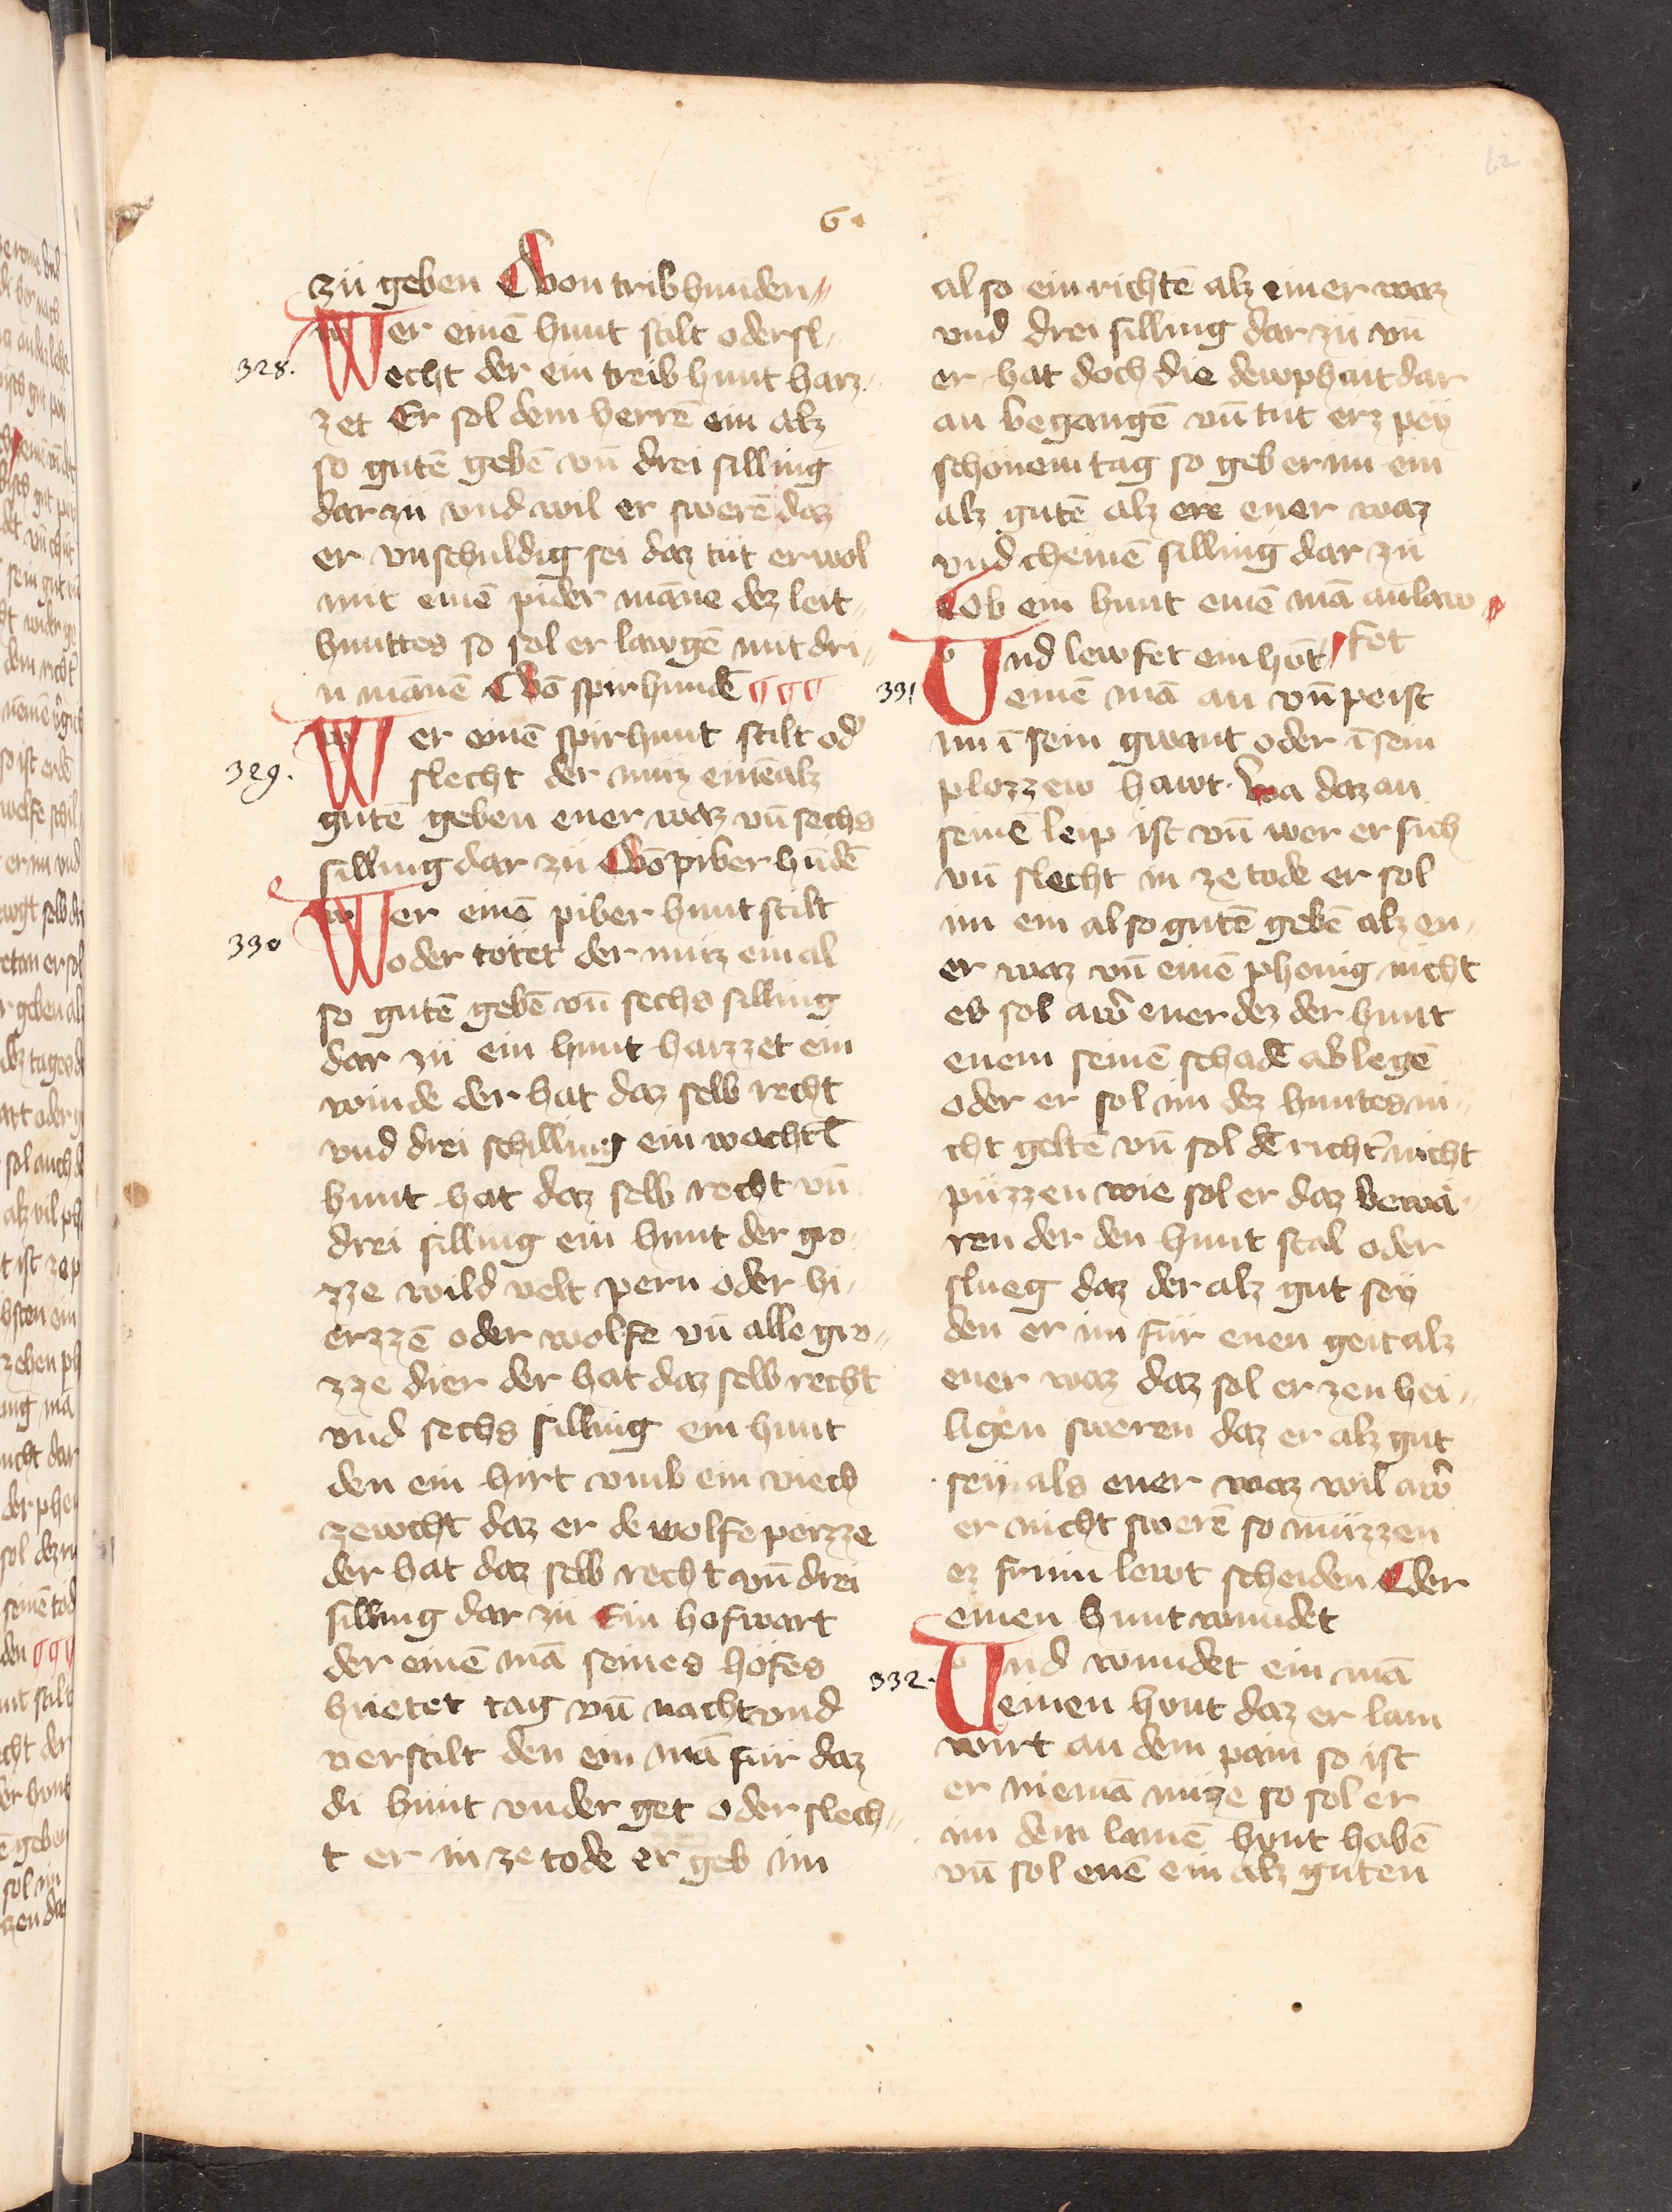 62
6
zü geben Von tribhunden
Wer einē hunt stilt oder sl„
328.
echt der ein treibhunt harz„
zet Er sol dem herrē ein alz
so gutē gebē vn̄ drei silling
dar zü vnd wil er swerē daz
er vnschuldig sei daz tüt er wol
mit einē pider māne dez leit„
huntes so sol er lawgē mit dri„
n mānē Vō spirhundē
Wer einē spirhunt stilt od̾
329.
slecht der müz einē alz
gutē geben ener waz vn̄ sechs
silling dar zü Vō piberhūdē
Wer einē piberhunt stilt
330
oder tötet der müz ein al
so gutē gebē vn̄ sechs silling
dar zü ein hunt harzzet ein
winde der hat daz selb recht
vnd drei schilling ein wachtl̄
hunt hat daz selb recht vn̄
drei silling ein hunt der gro„
zze wild velt pern oder hi„
erzzē oder wolfe vn̄ alle gro„
zze dier der hat daz selb recht
vnd sechs silling ein hunt
den ein hirt vmb ein viech
zewcht daz er de wolfe peizze
der hat daz selb recht vn̄ drei
silling dar zü Ein hofwart
der einē mā seines höfes
hüetet tag vn̄ nacht vnd
verstilt den ein mā für daz
di hünt vnder get oder slech„
t er in ze tode er geb im
also ein richtē alz einer waz
vnd drei silling dar zü vn̄
er hat doch die dewphait dar
an begangē vn̄ tüt erz pey
schönem tag so geb er im ein
alz gutē alz ere ener waz
vnd cheinē silling dar zü
Ob ein hunt einē mā anlaw„
fet
Vnd lewfet ein hūt
331
einē mā an vn̄ peist
im ī sein gwant oder ī sein
plozzew hawt. Wa daz an
seinē leip ist vn̄ wer er sich
vn̄ slecht in ze tode er sol
im ein also gutē gebē alz en„
er waz vn̄ einē phenig nicht
es sol aw̄ ener dez der hunt
enem seinē schadē ablegē
oder er sol im dez huntes ni„
cht geltē vn̄ sol dē richt̾ nicht
püzzen wie sol er daz bewä„
ren der den hunt stal oder
slueg daz der alz gut sey
den er im für enen geit alz
ener waz daz sol er zen hei„
ligen sweren daz er alz gut
sey als ener waz wil aw̄
er nicht swerē so müzzen
ez frum lewt scheiden Der
einen hunt wundet
Vnd wundet ein mā
332.
einen hunt daz er lam
wirt an dem pain so ist
er niemā nüze so sol er
im dem lamē hunt habē
vn̄ sol enē ein alz guten